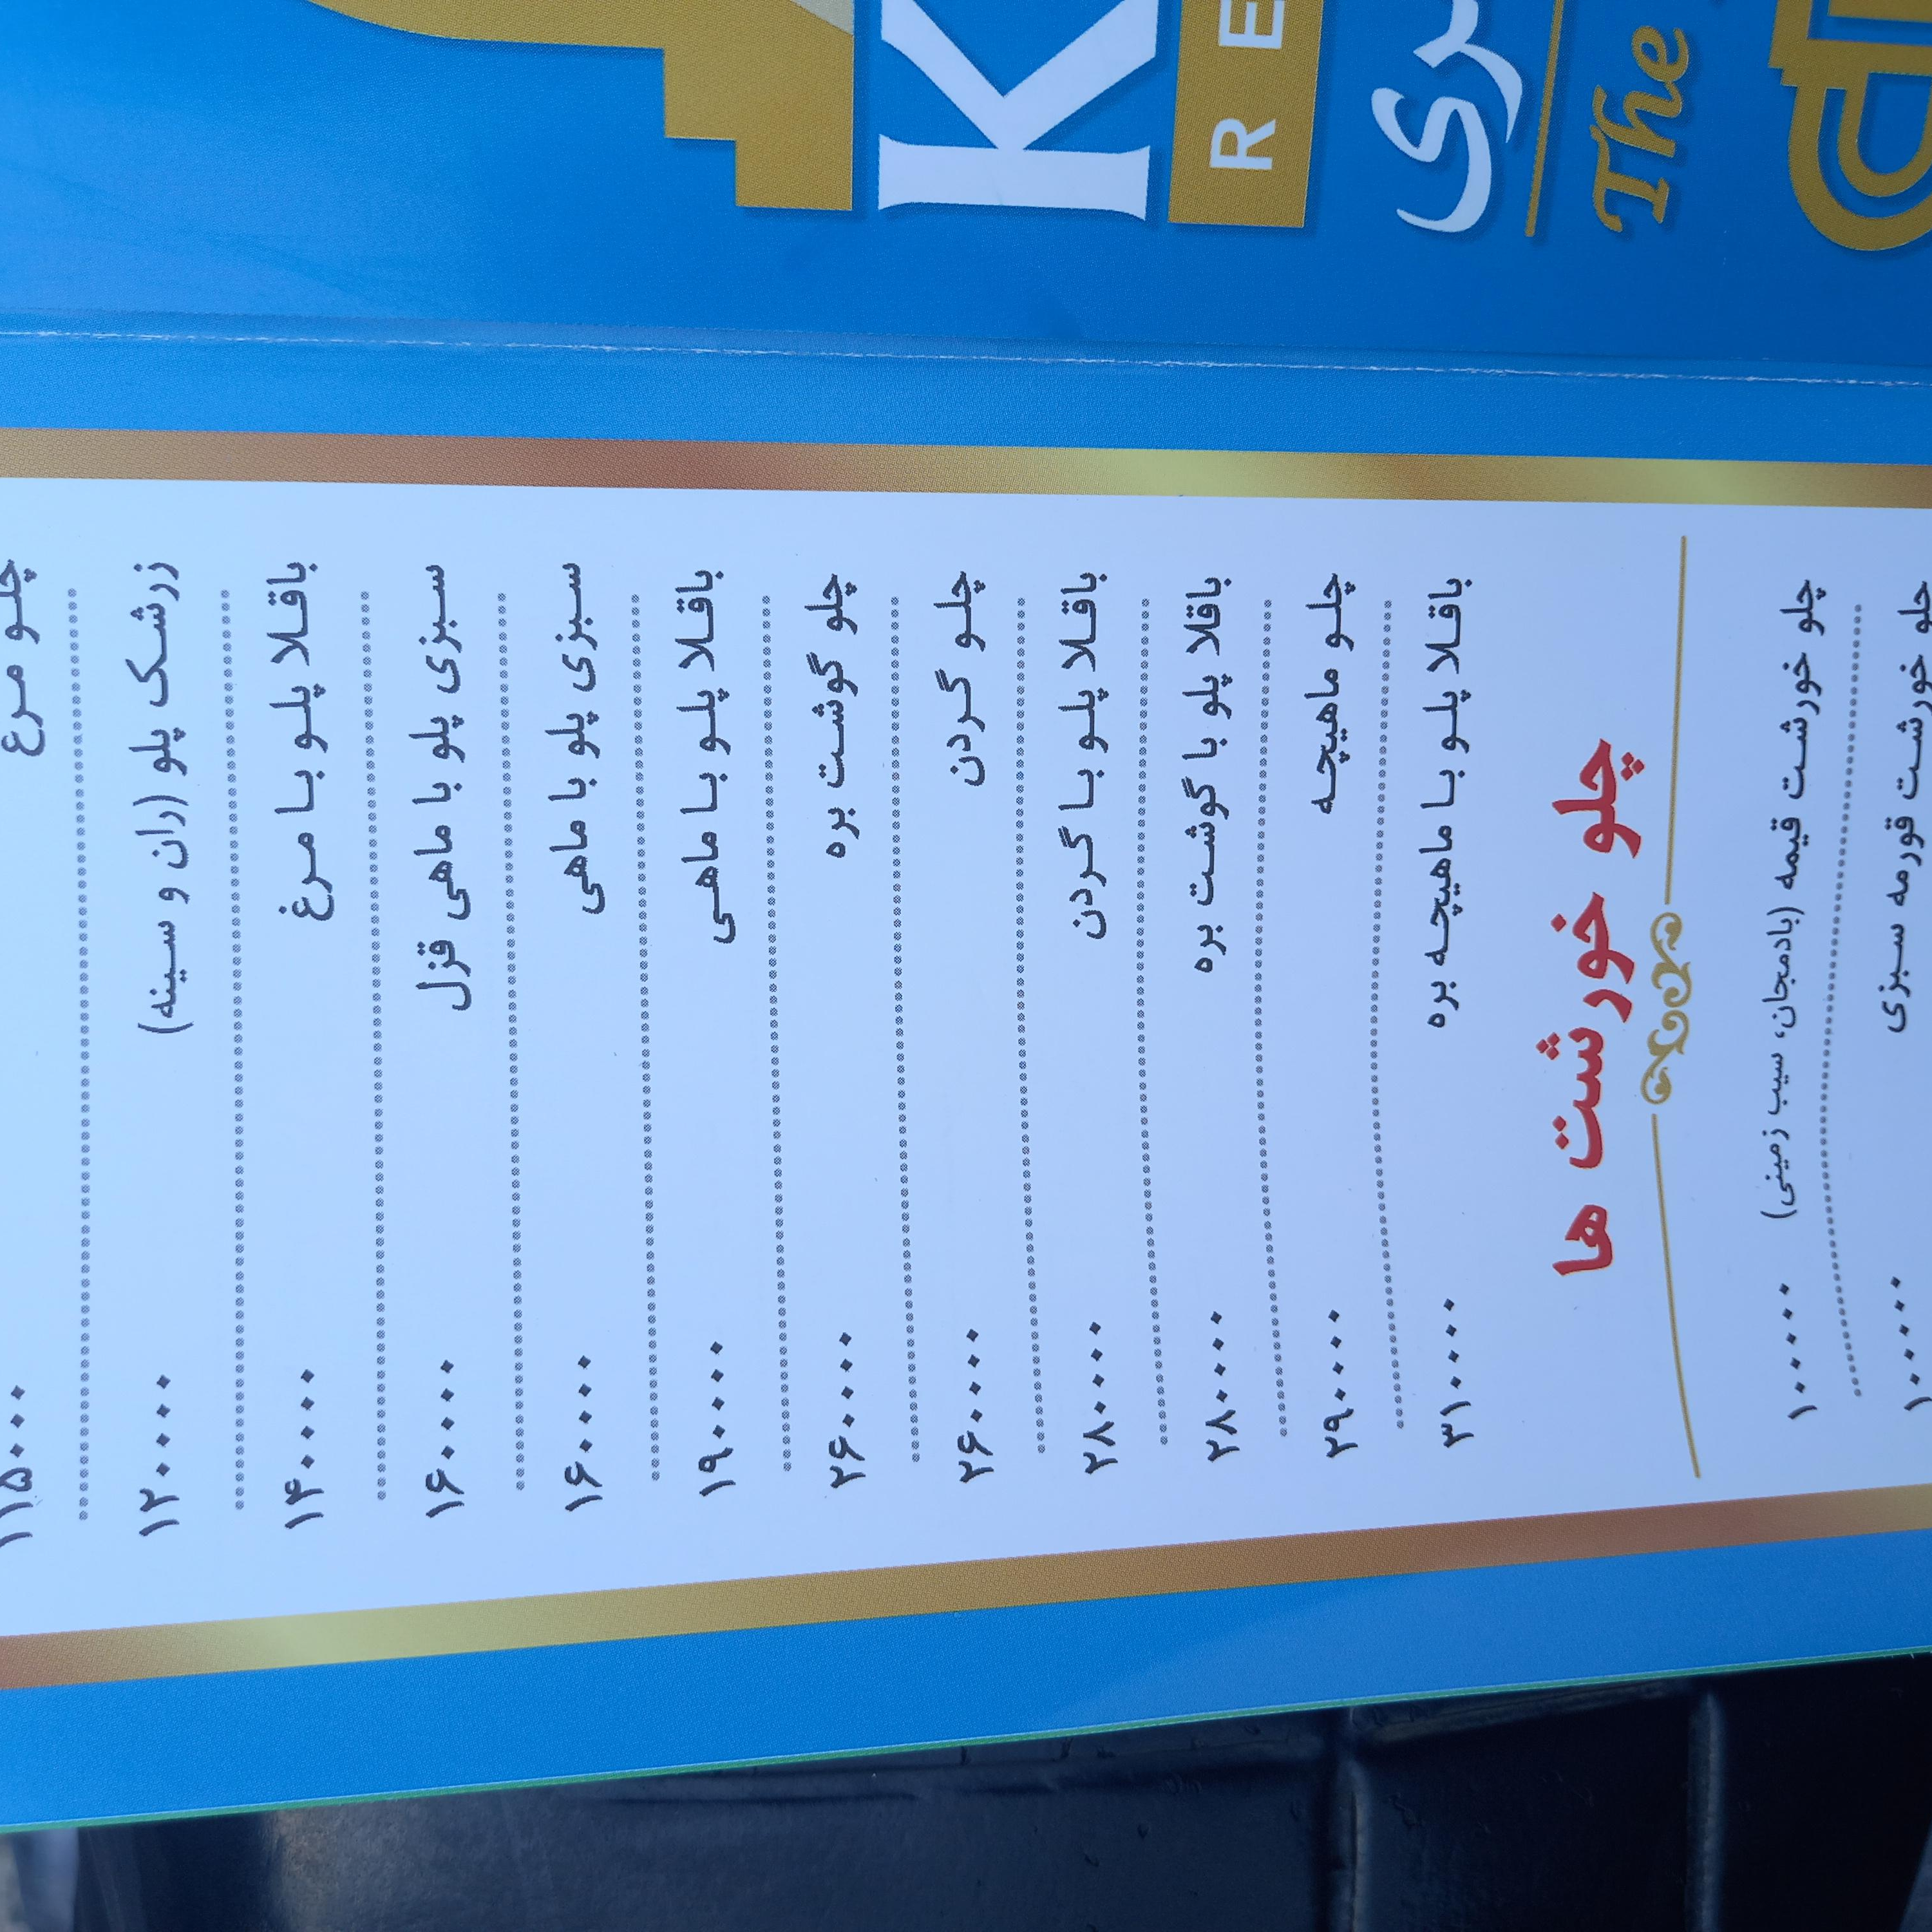 K
RE
The
چلو مرغ ۱۱۵۰۰۰
زرشک پلو (ران و سینه) ۱۲۰۰۰۰
باقلا پلو با مرغ ۱۴۰۰۰۰
سبزی پلو با ماهی قزل ۱۶۰۰۰۰
سبزی پلو با ماهی ۱۶۰۰۰۰
باقلا پلو با ماهی ۱۹۰۰۰۰
چلو گوشت بره ۲۶۰۰۰۰
چلو گردن ۲۶۰۰۰۰
باقلا پلو با گردن ۲۸۰۰۰۰
باقلا پلو با گوشت بره ۲۸۰۰۰۰
چلو ماهیچه ۲۹۰۰۰۰
باقلا پلو با ماهیچه بره ۳۱۰۰۰۰
چلو خورشت ها
چلو خورشت قیمه (بادمجان، سیب زمینی) ۱۰۰۰۰۰
چلو خورشت قورمه سبزی ۱۰۰۰۰۰